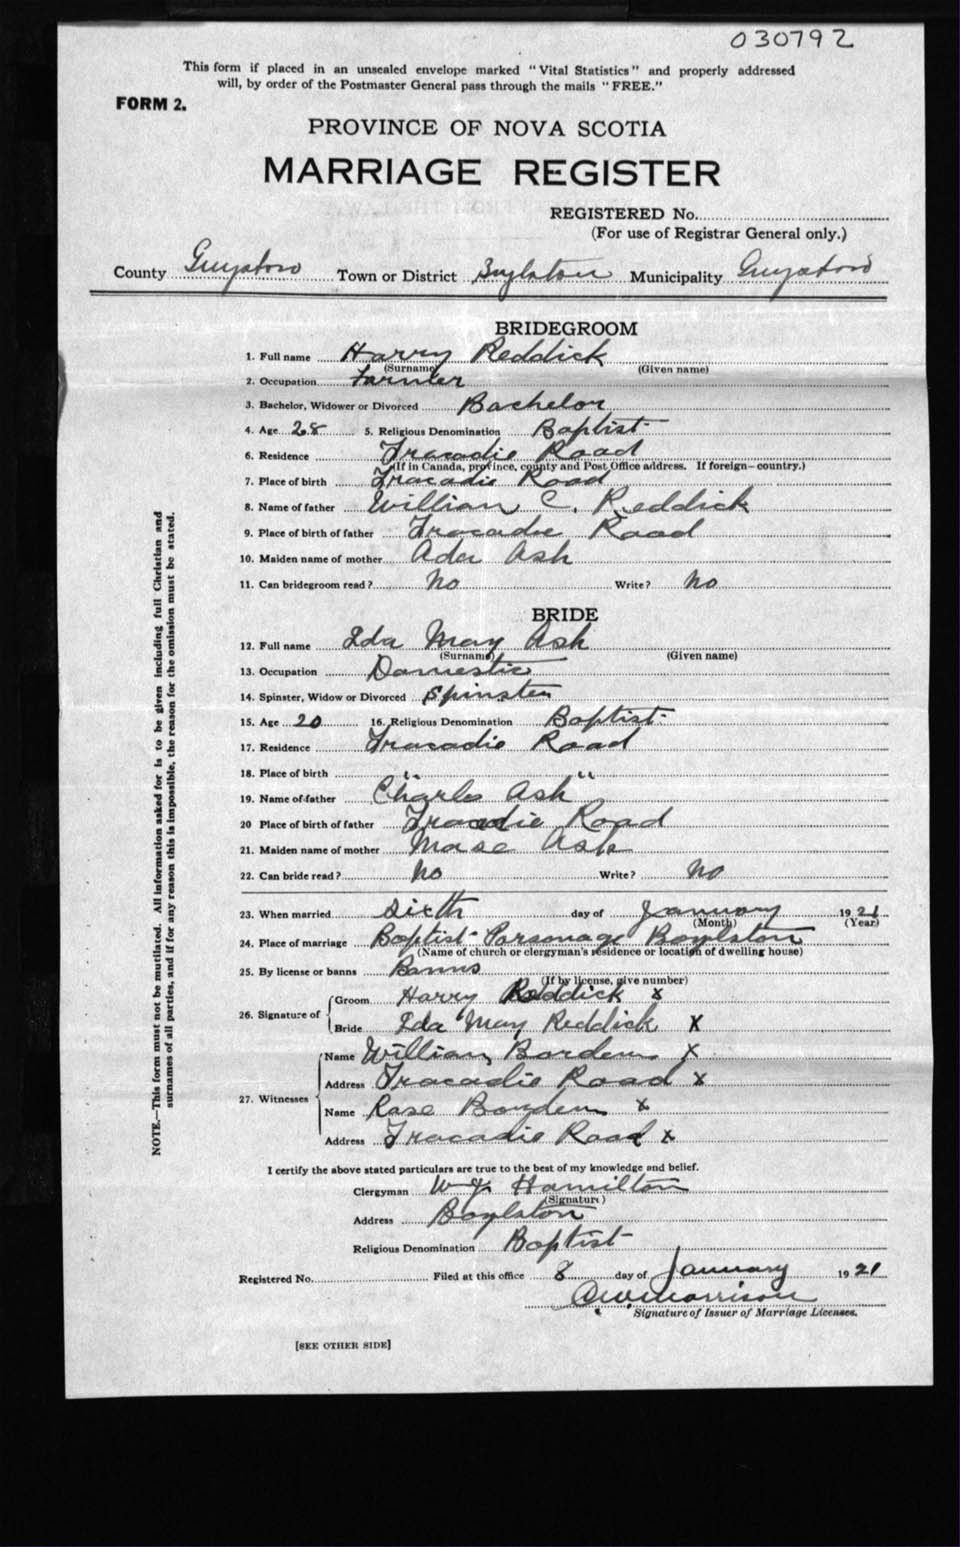 030792
This form if placed in an unsealed envelope marked "Vital Statistics" and properly addressed
will, by order of the Postmaster General pass through the mails "FREE."
FORM 2.
PROVINCE OF NOVA SCOTIA
MARRIAGE REGISTER
REGISTERED No.
(For use of Registrar General only.)
County Guysboro Town or District Boylston Municipality Guysboro
BRIDEGROOM
1. Full name Harry Reddick
(Surname) (Given name)
2. Occupation Farmer
3. Bachelor, Widower or Divorced Bachelor
4. Age 28 5. Religious Denomination Baptist
6. Residence Tracadie Road
(If in Canada, province, county and Post Office address. If foreign—country.)
7. Place of birth Tracadie Road
8. Name of father William C. Reddick
9. Place of birth of father Tracadie Road
10. Maiden name of mother Ada Ash
11. Can bridegroom read? No Write? No
BRIDE
12. Full name Ida May Ash
(Surname) (Given name)
13. Occupation Domestic
14. Spinster, Widow or Divorced Spinster
15. Age 20 16. Religious Denomination Baptist
17. Residence Tracadie Road
18. Place of birth " "
19. Name of father Charles Ash
20 Place of birth of father Tracadie Road
21. Maiden name of mother Ash
22. Can bride read? No Write? No
23. When married Sixth day of January 1921
(Month) (Year)
24. Place of marriage Baptist Parsonage Boylston
(Name of church or clergyman's residence or location of dwelling house)
25. By license or banns Banns
(If by license, give number)
26. Signature of Groom Harry Reddick x
Bride Ida May Reddick X
27. Witnesses Name William Borden X
Address Tracadie Road x
Name Rase Borden x
Address Tracadie Road x
I certify the above stated particulars are true to the best of my knowledge and belief.
Clergyman Hamilton
(Signature)
Address Boylston
Religious Denomination Baptist
Registered No. Filed at this office 8 day of January 1921
Morrison
Signature of Issuer of Marriage Licenses.
[SEE OTHER SIDE]
NOTE.—This form must not be mutilated. All information asked for is to be given including full Christian and
surnames of all parties, and if for any reason this is impossible, the reason for the omission must be stated.